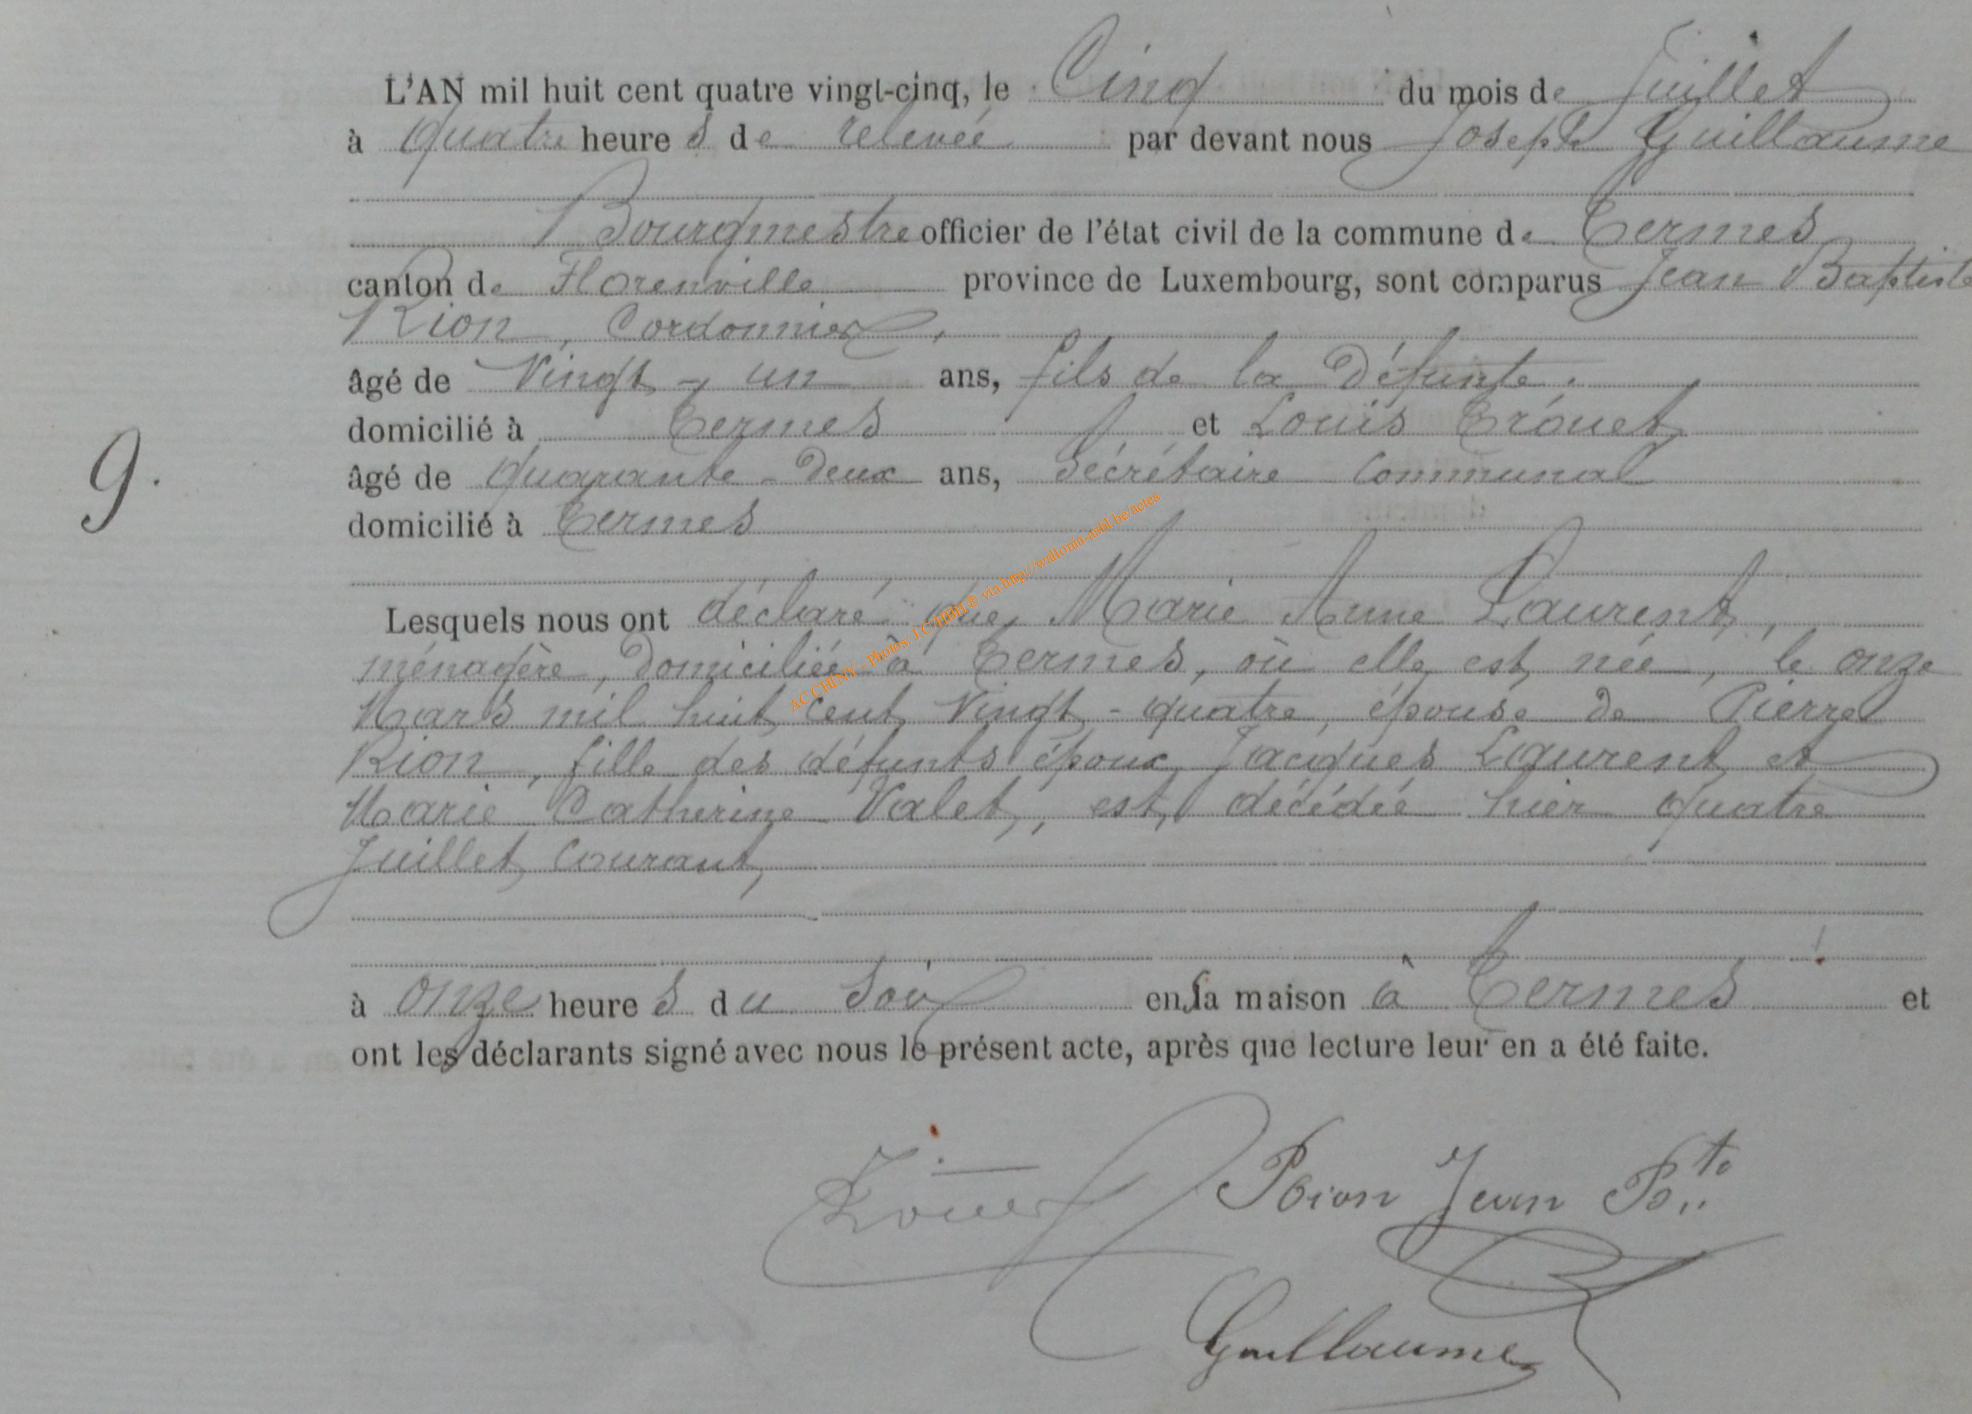 L'AN mil huit cent quatre vingt-cinq, le Cinq du mois de Juillet
à quatre heures de relevée par devant nous Joseph Guillaume
Bourgmestre officier de l'état civil de la commune de Termes
canton de Florenville province de Luxembourg, sont comparus Jean Baptiste
Rion, Cordonnier,
âgé de Vingt-un ans, fils de la Défunte.
domicilié à Termes et Louis Trouet
9. âgé de quarante-deux ans, Sécrétaire Communal
domicilié à Termes
Lesquels nous ont déclaré que Marie Anne Laurent,
ménagère, domiciliée à Termes, où elle est née, le onze
Mars mil huit cent Vingt-quatre, épouse de Pierre
Rion, fille des défunts époux Jacques Laurent et
Marie Catherine Valet, est décédée hier quatre
Juillet Courant,
à onze heures du Soir en sa maison à Termes et
ont les déclarants signé avec nous le présent acte, après que lecture leur en a été faite.
Trouet Rion Jean Bte
Guillaume
AC CHINY - Photos J.C HBH © via http://wallonia-asbl.be/actes